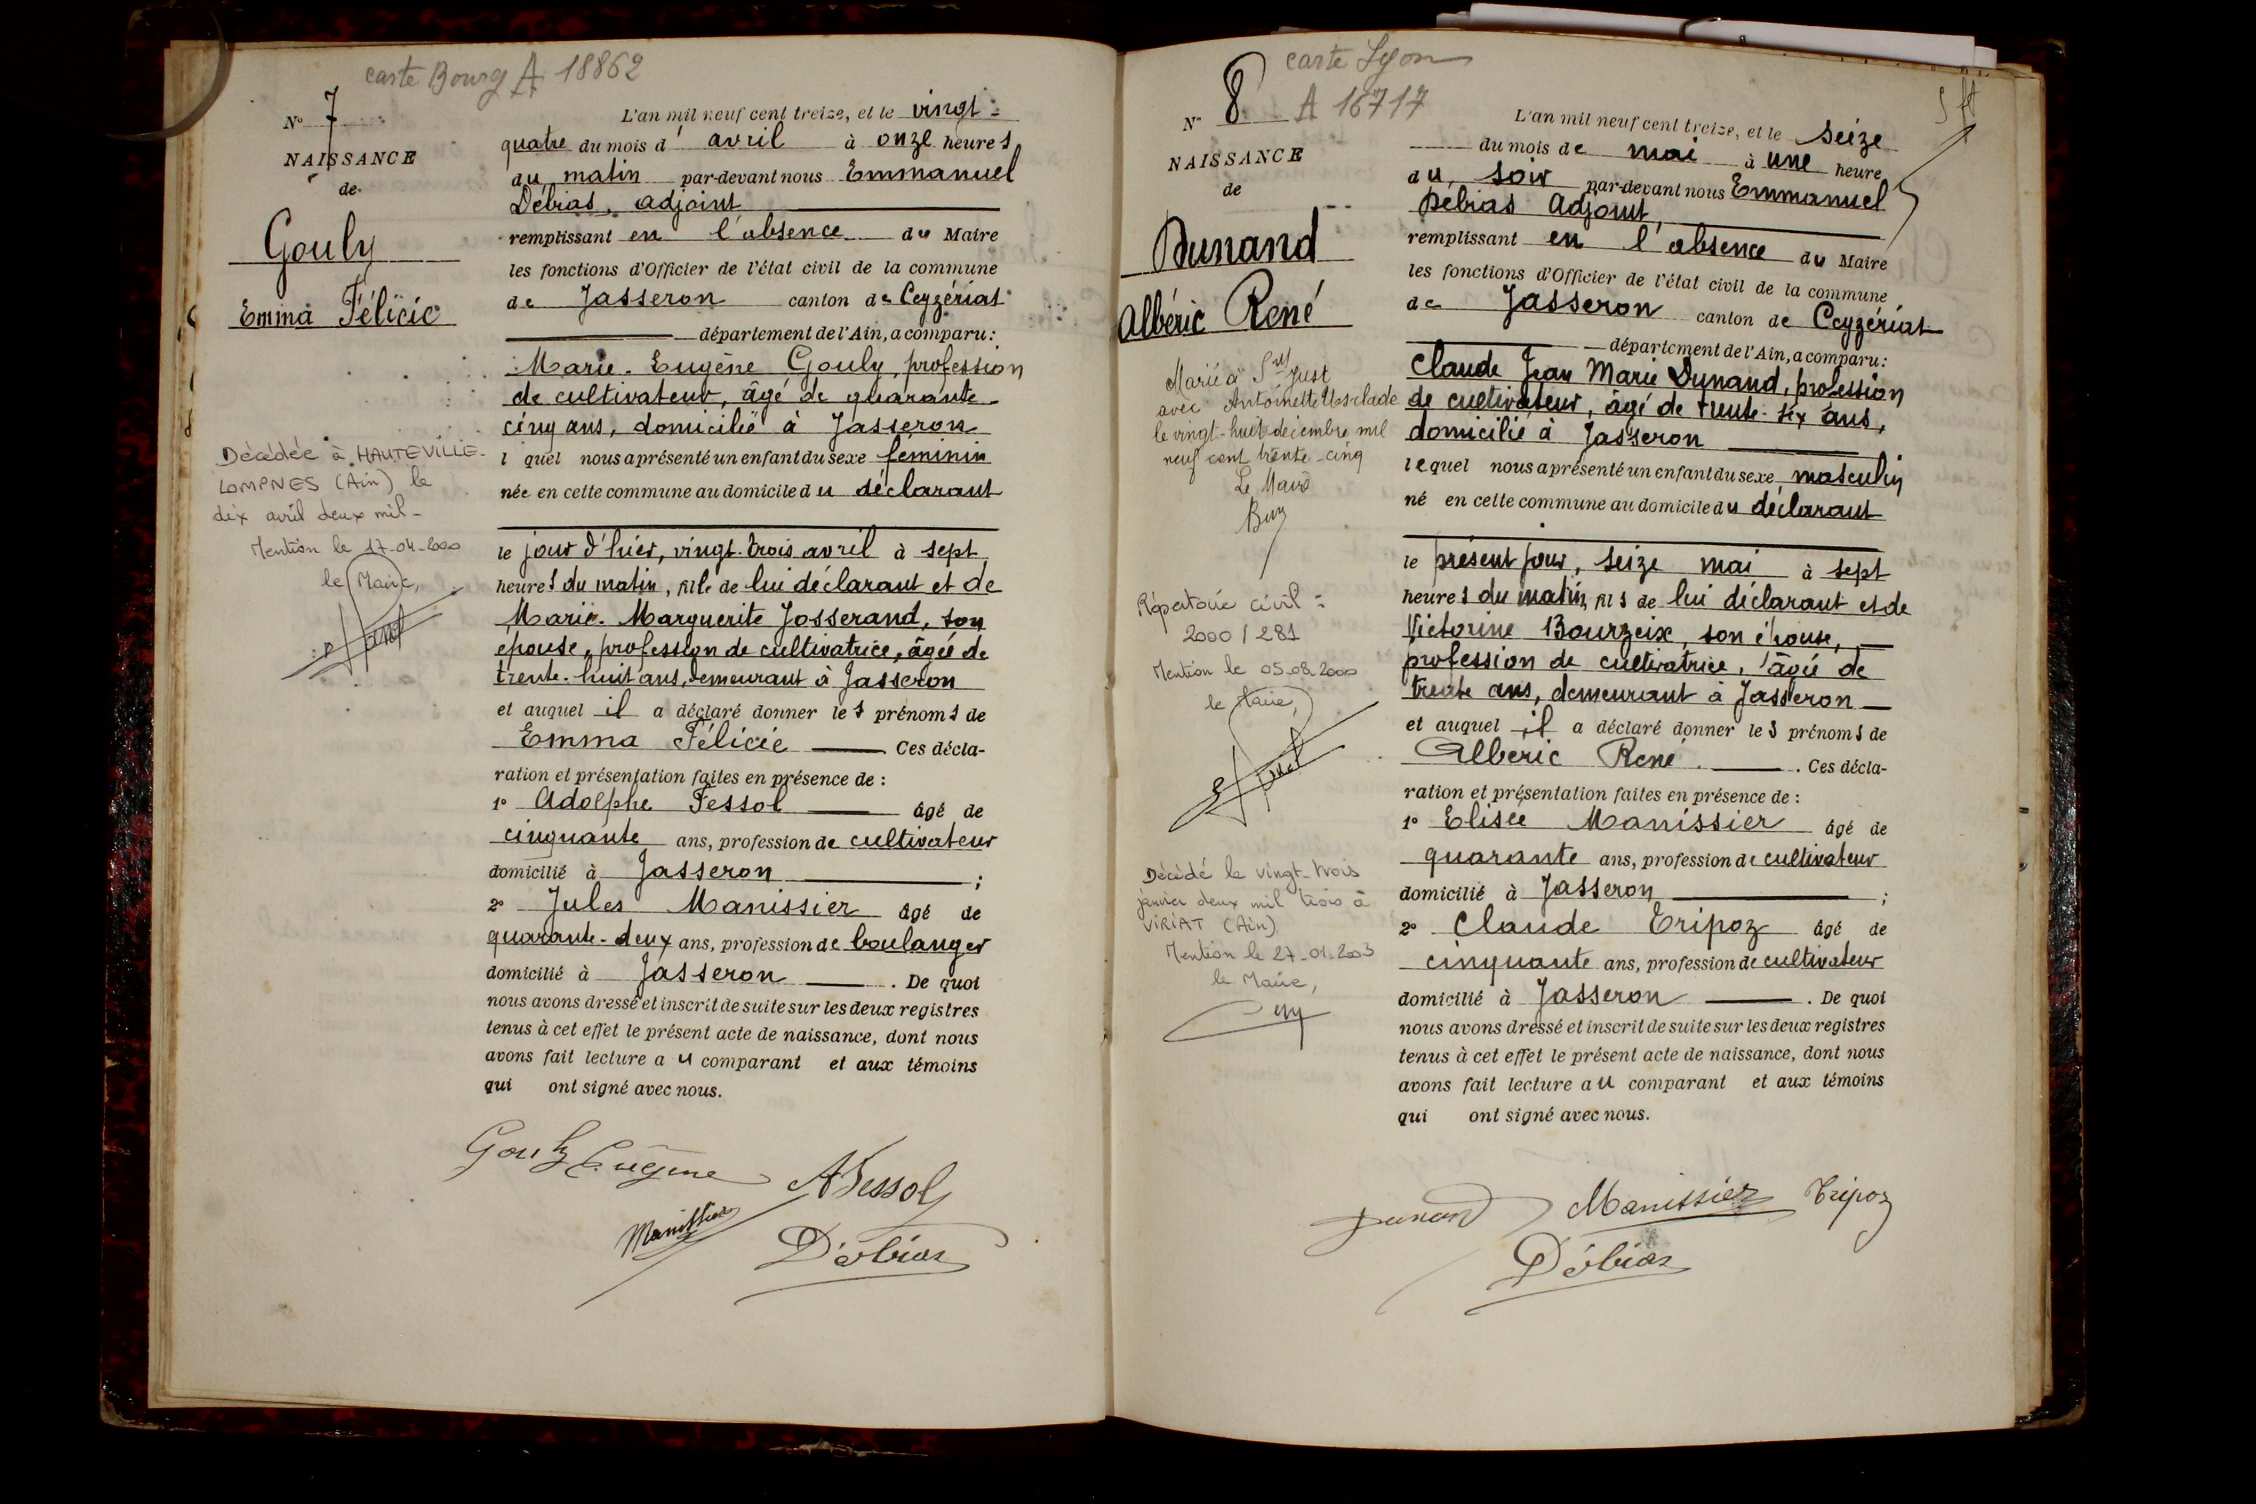 carte Bourg A 18862
N° 7
NAISSANCE
de
Gouly
Emma Félicie
Décédée à HAUTEVILLE-
LOMPNES (Ain) le
dix avril deux mil-
Mention le 17-04-2000
le Maire,
L'an mil neuf cent treize, et le vingt-
quatre du mois d'avril à onze heures
du matin par-devant nous Emmanuel
Débias, adjoint
remplissant en l'absence du Maire
les fonctions d'Officier de l'état civil de la commune
de Jasseron canton de Ceyzériat
département de l'Ain, a comparu:
Marie-Eugène Gouly, profession
de cultivateur, âgé de quarante-
cinq ans, domicilié à Jasseron
l quel nous a présenté un enfant du sexe féminin
née en cette commune au domicile du déclarant
le jour d'hier, vingt-trois avril à sept
heures du matin, fille de lui déclarant et de
Marie-Marguerite Josserand, son
épouse, profession de cultivatrice, âgée de
trente-huit ans, demeurant à Jasseron
et auquel il a déclaré donner les prénoms de
Emma Félicie Ces décla-
ration et présentation faites en présence de :
1° Adolphe Fessol âgé de
cinquante ans, profession de cultivateur
domicilié à Jasseron ;
2° Jules Manissier âgé de
quarante-deux ans, profession de boulanger
domicilié à Jasseron . De quoi
nous avons dressé et inscrit de suite sur les deux registres
tenus à cet effet le présent acte de naissance, dont nous
avons fait lecture au comparant et aux témoins
qui ont signé avec nous.
Gouly Eugène
A Fessol
Manissier
Débias
carte Lyon
N° 8 A 16717
NAISSANCE
de
Dunand
Albéric René
Marié à St Just
avec Antoinette Usclade
le vingt-huit décembre mil
neuf cent trente-cinq
Le Maire
Répertoire civil :
2000 / 281
Mention le 05.08.2000
le Maire,
Décédé le vingt-trois
janvier deux mil trois à
VIRIAT (Ain)
Mention le 27-01-2003
le Maire,
L'an mil neuf cent treize, et le seize
du mois de mai à une heure
du soir par-devant nous Emmanuel
Débias Adjoint,
remplissant en l'absence du Maire
les fonctions d'Officier de l'état civil de la commune
de Jasseron canton de Ceyzériat
département de l'Ain, a comparu:
Claude Jean Marie Dunand, profession
de cultivateur, âgé de trente-six ans,
domicilié à Jasseron
lequel nous a présenté un enfant du sexe masculin
né en cette commune au domicile du déclarant
le présent jour, seize mai à sept
heures du matin, fils de lui déclarant et de
Victorine Bourzeix, son épouse,
profession de cultivatrice, âgée de
trente ans, demeurant à Jasseron
et auquel il a déclaré donner les prénoms de
Albéric René . Ces décla-
ration et présentation faites en présence de :
1° Elisée Manissier âgé de
quarante ans, profession de cultivateur
domicilié à Jasseron ;
2° Claude Tripoz âgé de
cinquante ans, profession de cultivateur
domicilié à Jasseron . De quoi
nous avons dressé et inscrit de suite sur les deux registres
tenus à cet effet le présent acte de naissance, dont nous
avons fait lecture au comparant et aux témoins
qui ont signé avec nous.
Dunand Manissier Tripoz
Débias